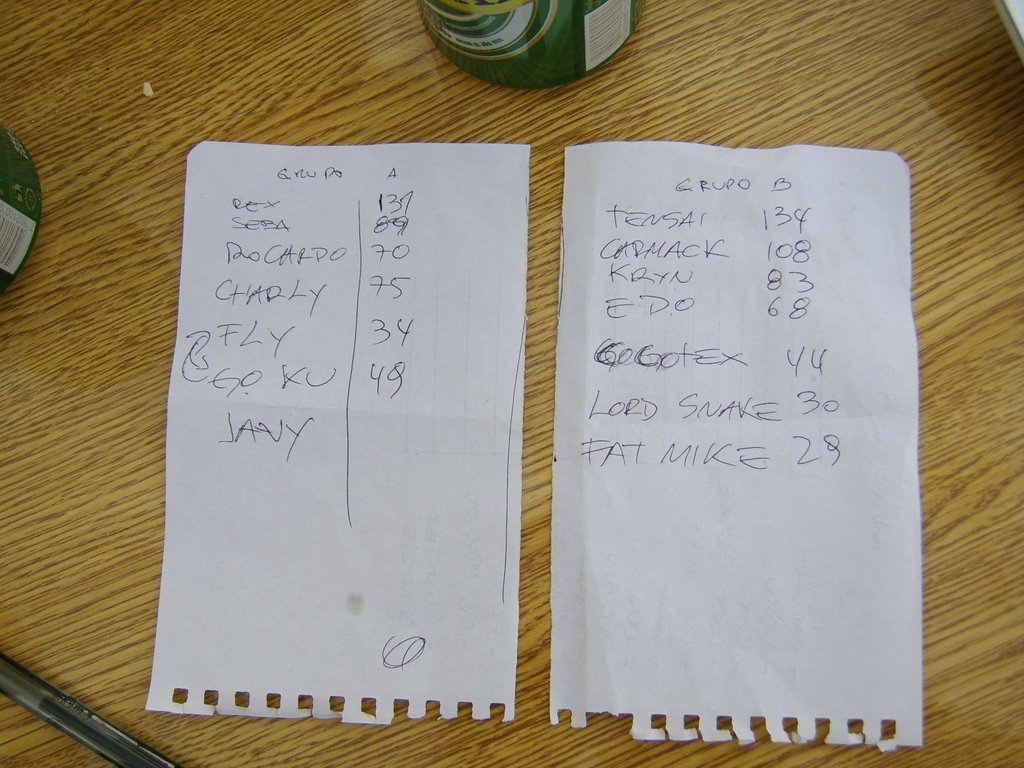 GRUPO A
REX 137
SEBA 89
ROCARDO 70
CHARLY 75
FLY 34
GO KU 49
JANY
GRUPO B
TENSAI 134
CARMACK 108
KRYN 83
EDO 68
GOGOTEX 44
LORD SNAKE 30
FAT MIKE 29